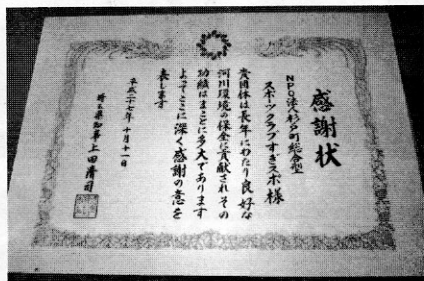 感謝状
NPO法人杉戸町総合型
スポーツクラブすぎスポ様
貴団体は長年にわたり良好な
河川環境の保全に貢献されその
功績はまことに多大であります
よってここに深く感謝の意を
表します
平成二十七年十月十一日
埼玉県知事上田清司